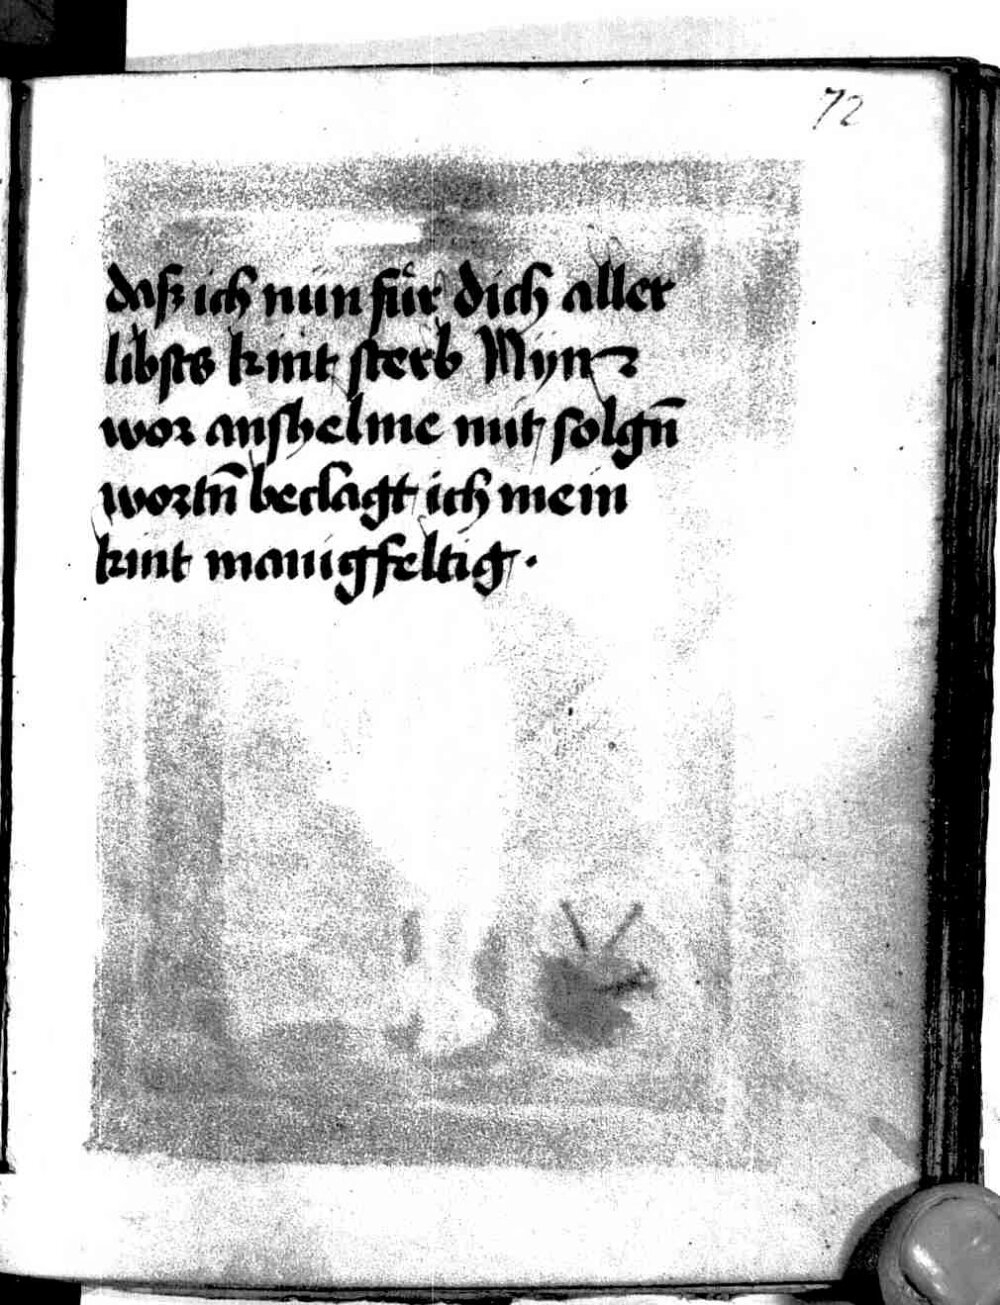 72
daß ich nün für dich aller
libstes kint sterb Myn
wor anshelme mit solgn̄
wortn̄ beclagt ich mein
kint manigfeltig·